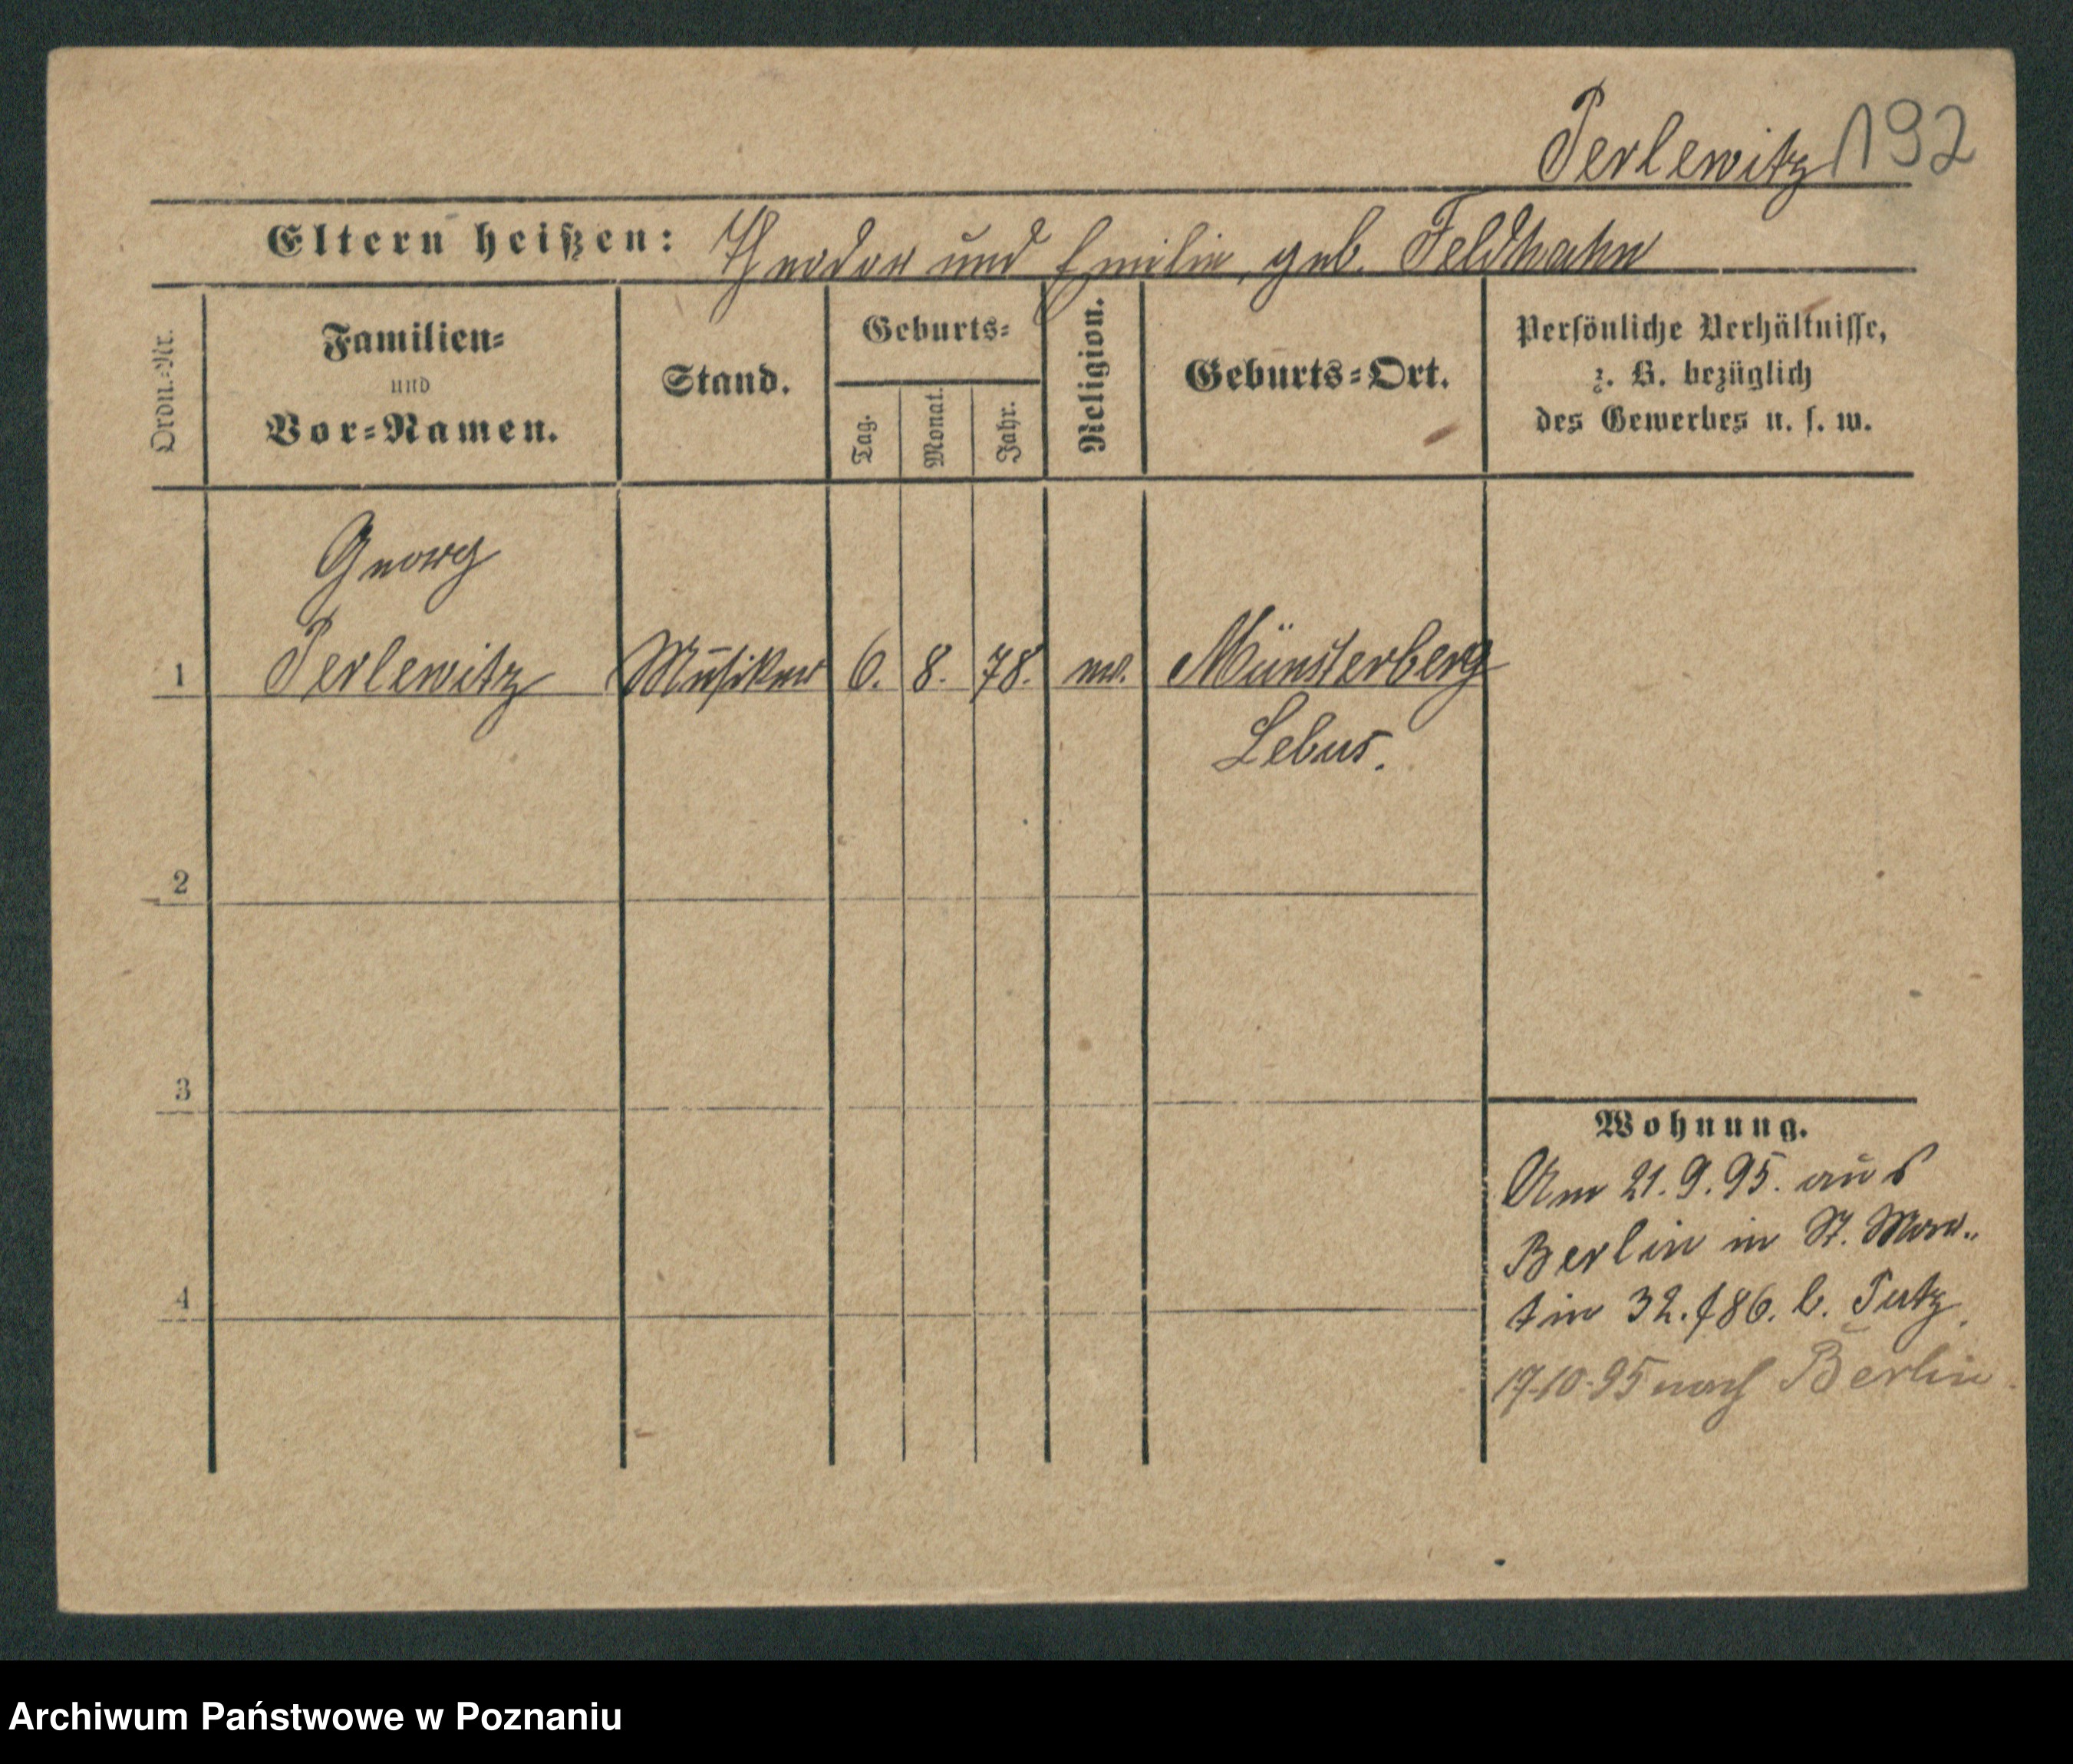 Perlewitz 192
Eltern heißen: Theodor und Emilie, geb. Feldhahn
Ordn.-Nr.
Familien-
und
Vor-Namen.
Stand.
Geburts-
Tag.
Monat.
Jahr.
Religion.
Geburts-Ort.
Persönliche Verhältnisse,
z. B. bezüglich
des Gewerbes u. s. w.
Georg
1 Perlewitz Musiker 6. 8. 78. ev. Münsterberg
Lebus.
2
3
4
Wohnung.
Am 21.9.95. aus
Berlin in St. Mar-
tin 32. f 86. b. Putz.
17.10.95 nach Berlin.
Archiwum Państwowe w Poznaniu